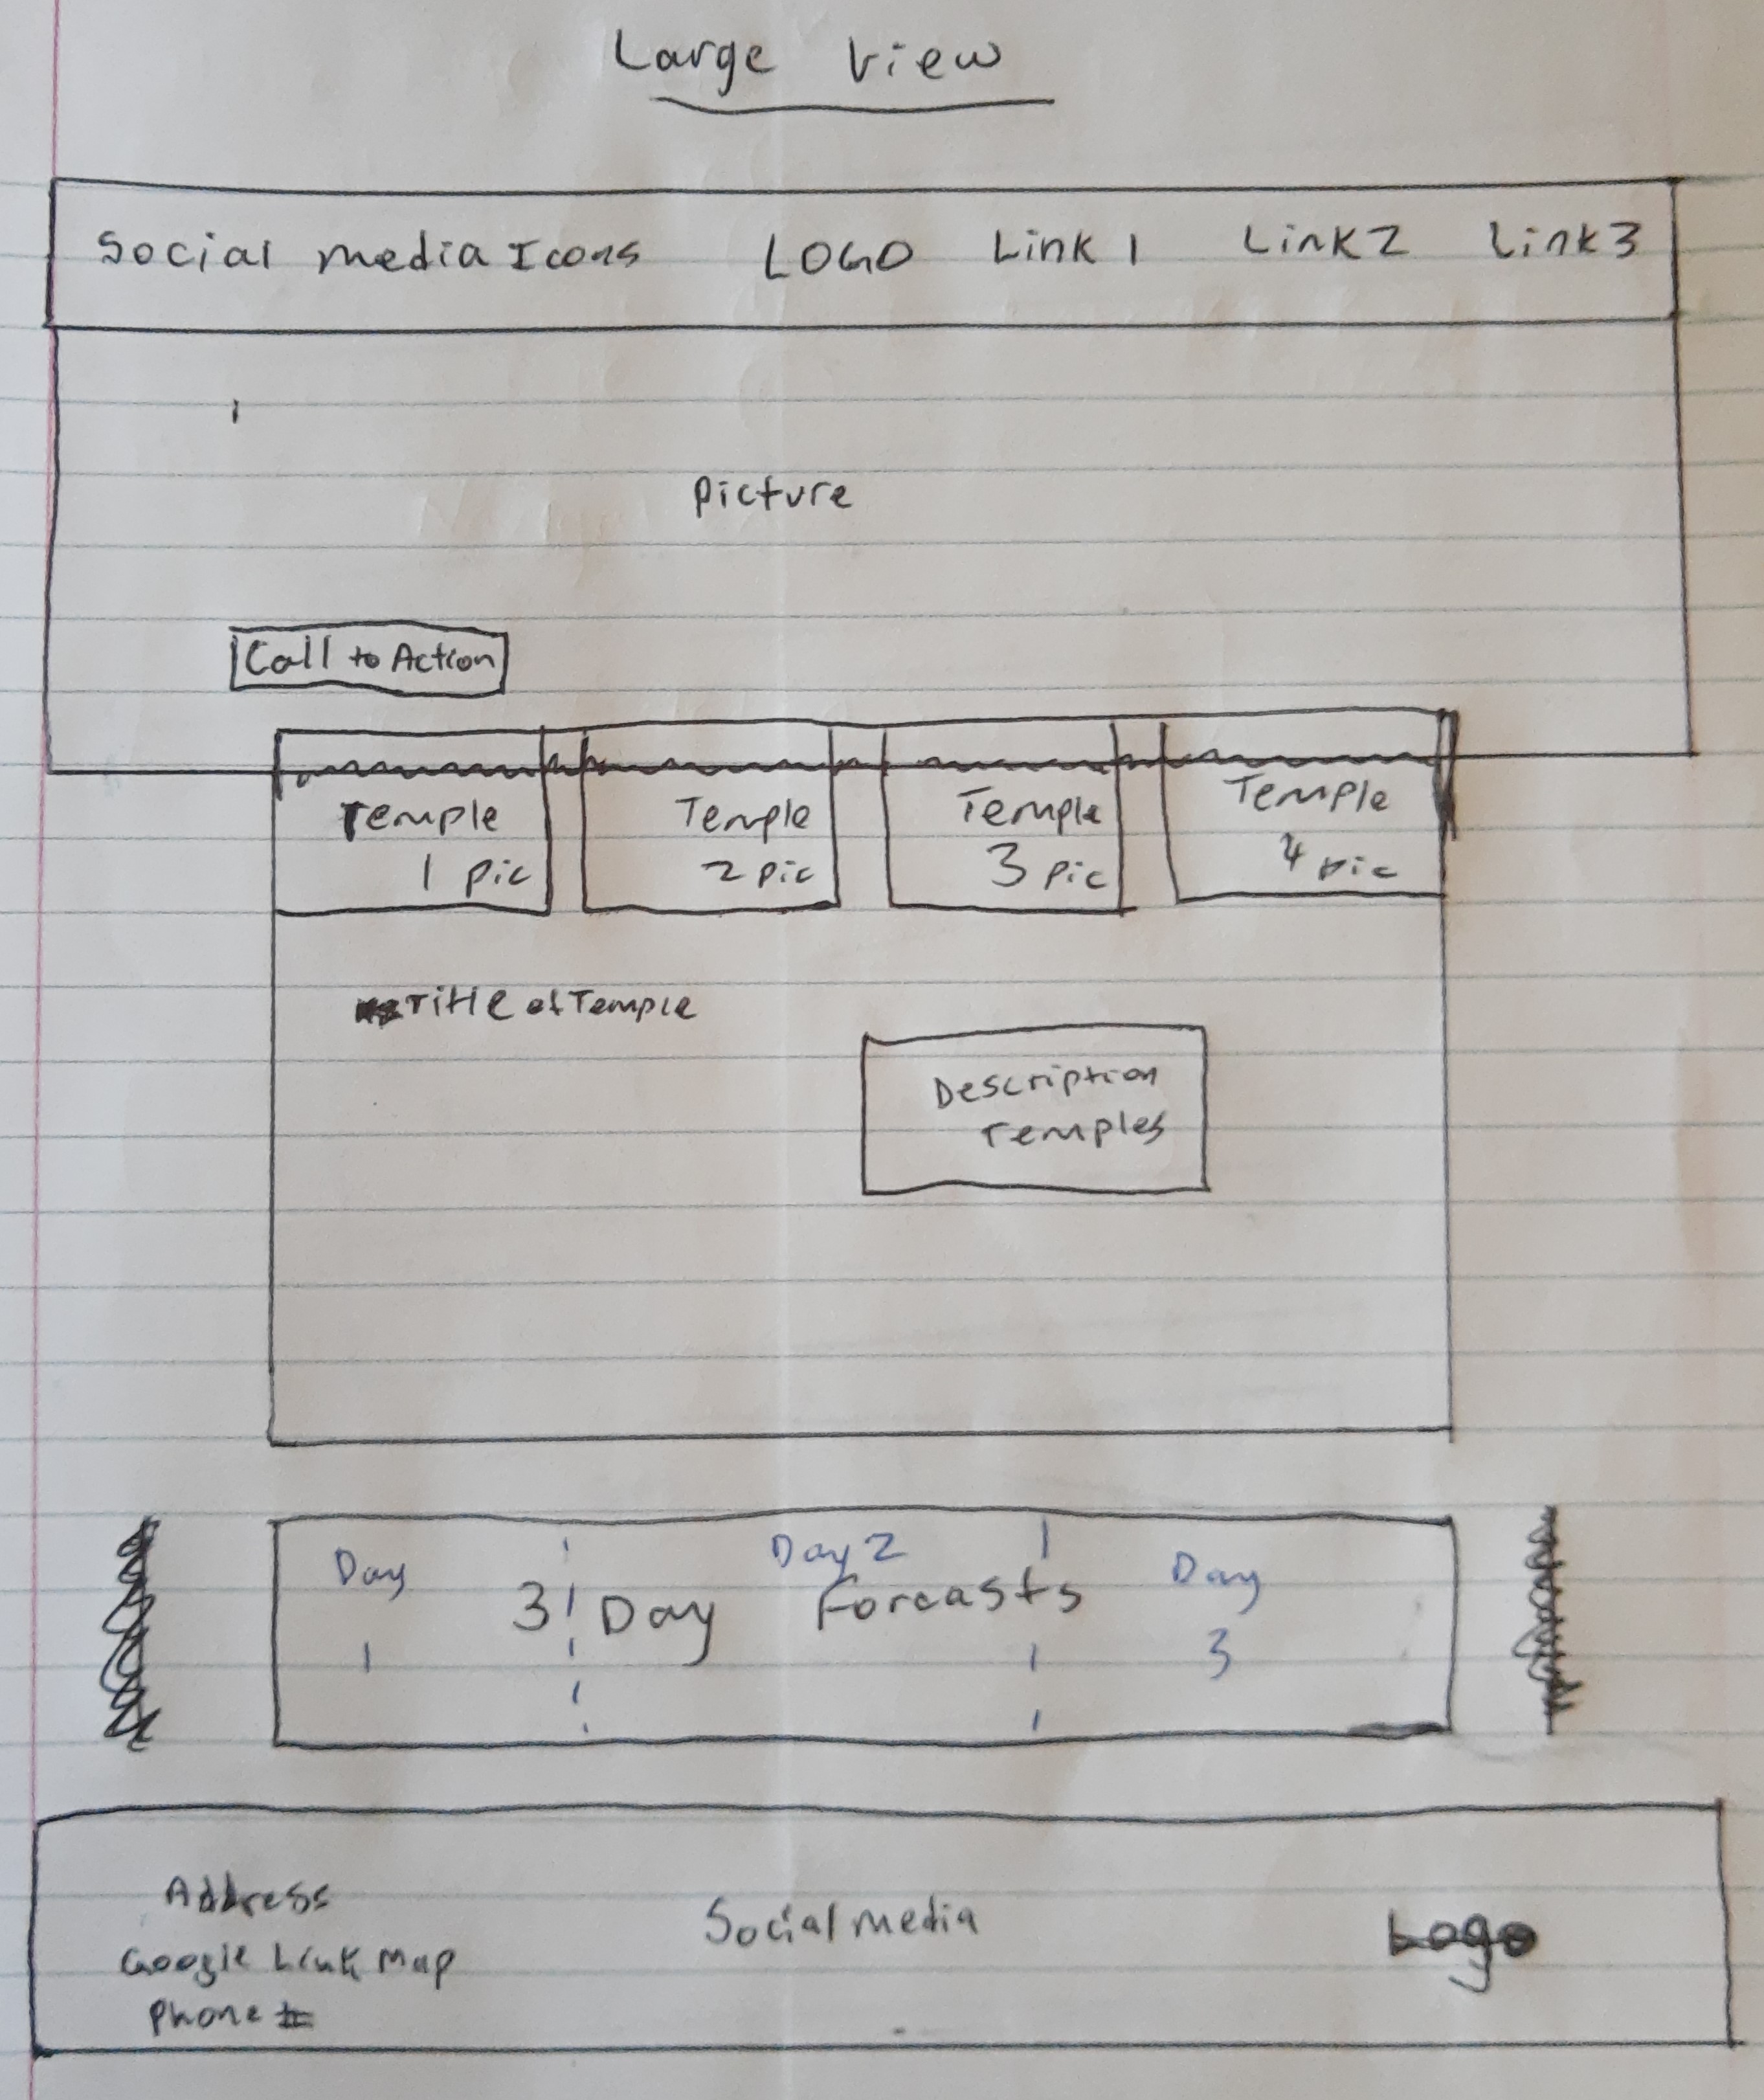 Large View
Social media Icons LOGO Link 1 Link2 Link3
Picture
Call to Action
Temple
1 Pic
Temple
2 Pic
Temple
3 Pic
Temple
4 pic
Title of Temple
Description
Temples
Day
1
Day 2
Day
3
3 Day Forcasts
Address
Google Link Map
Phone #
Social media
Logo